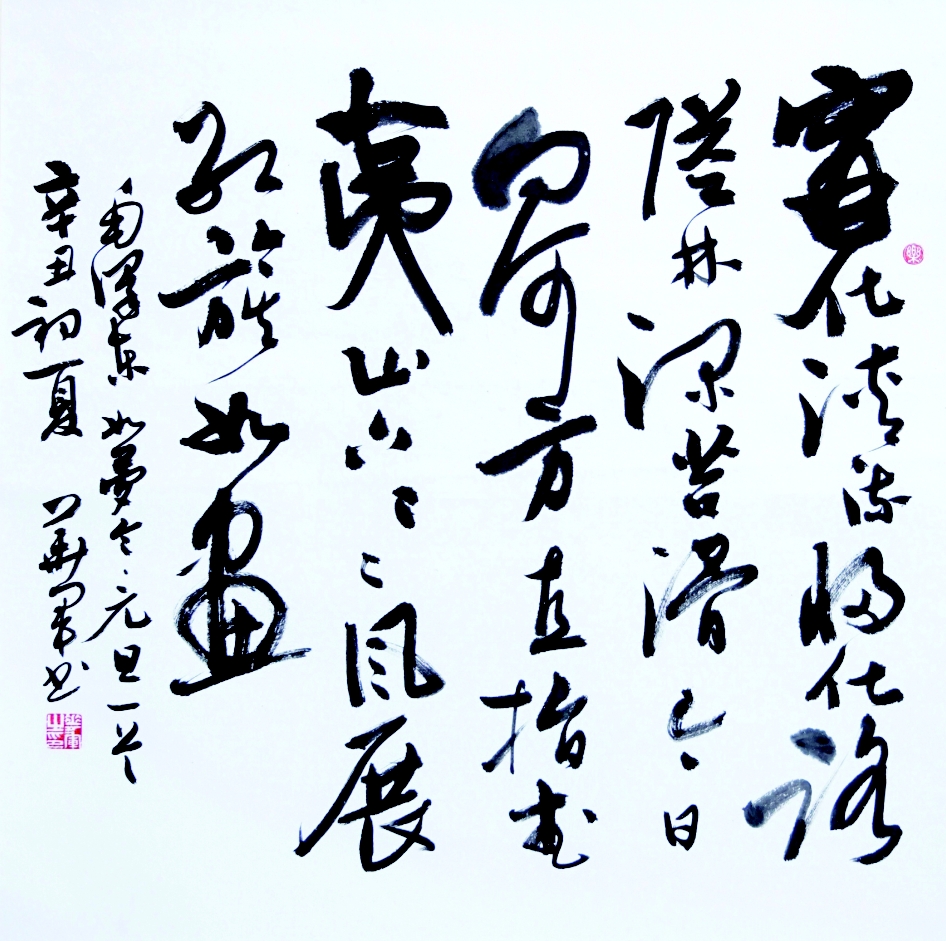 寧化清流歸化路
隘林深苔滑今日
向何方直指武
夷山下〻〻風展
紅旗如畫
毛澤東如夢令元旦一首
辛丑初夏 華軍书